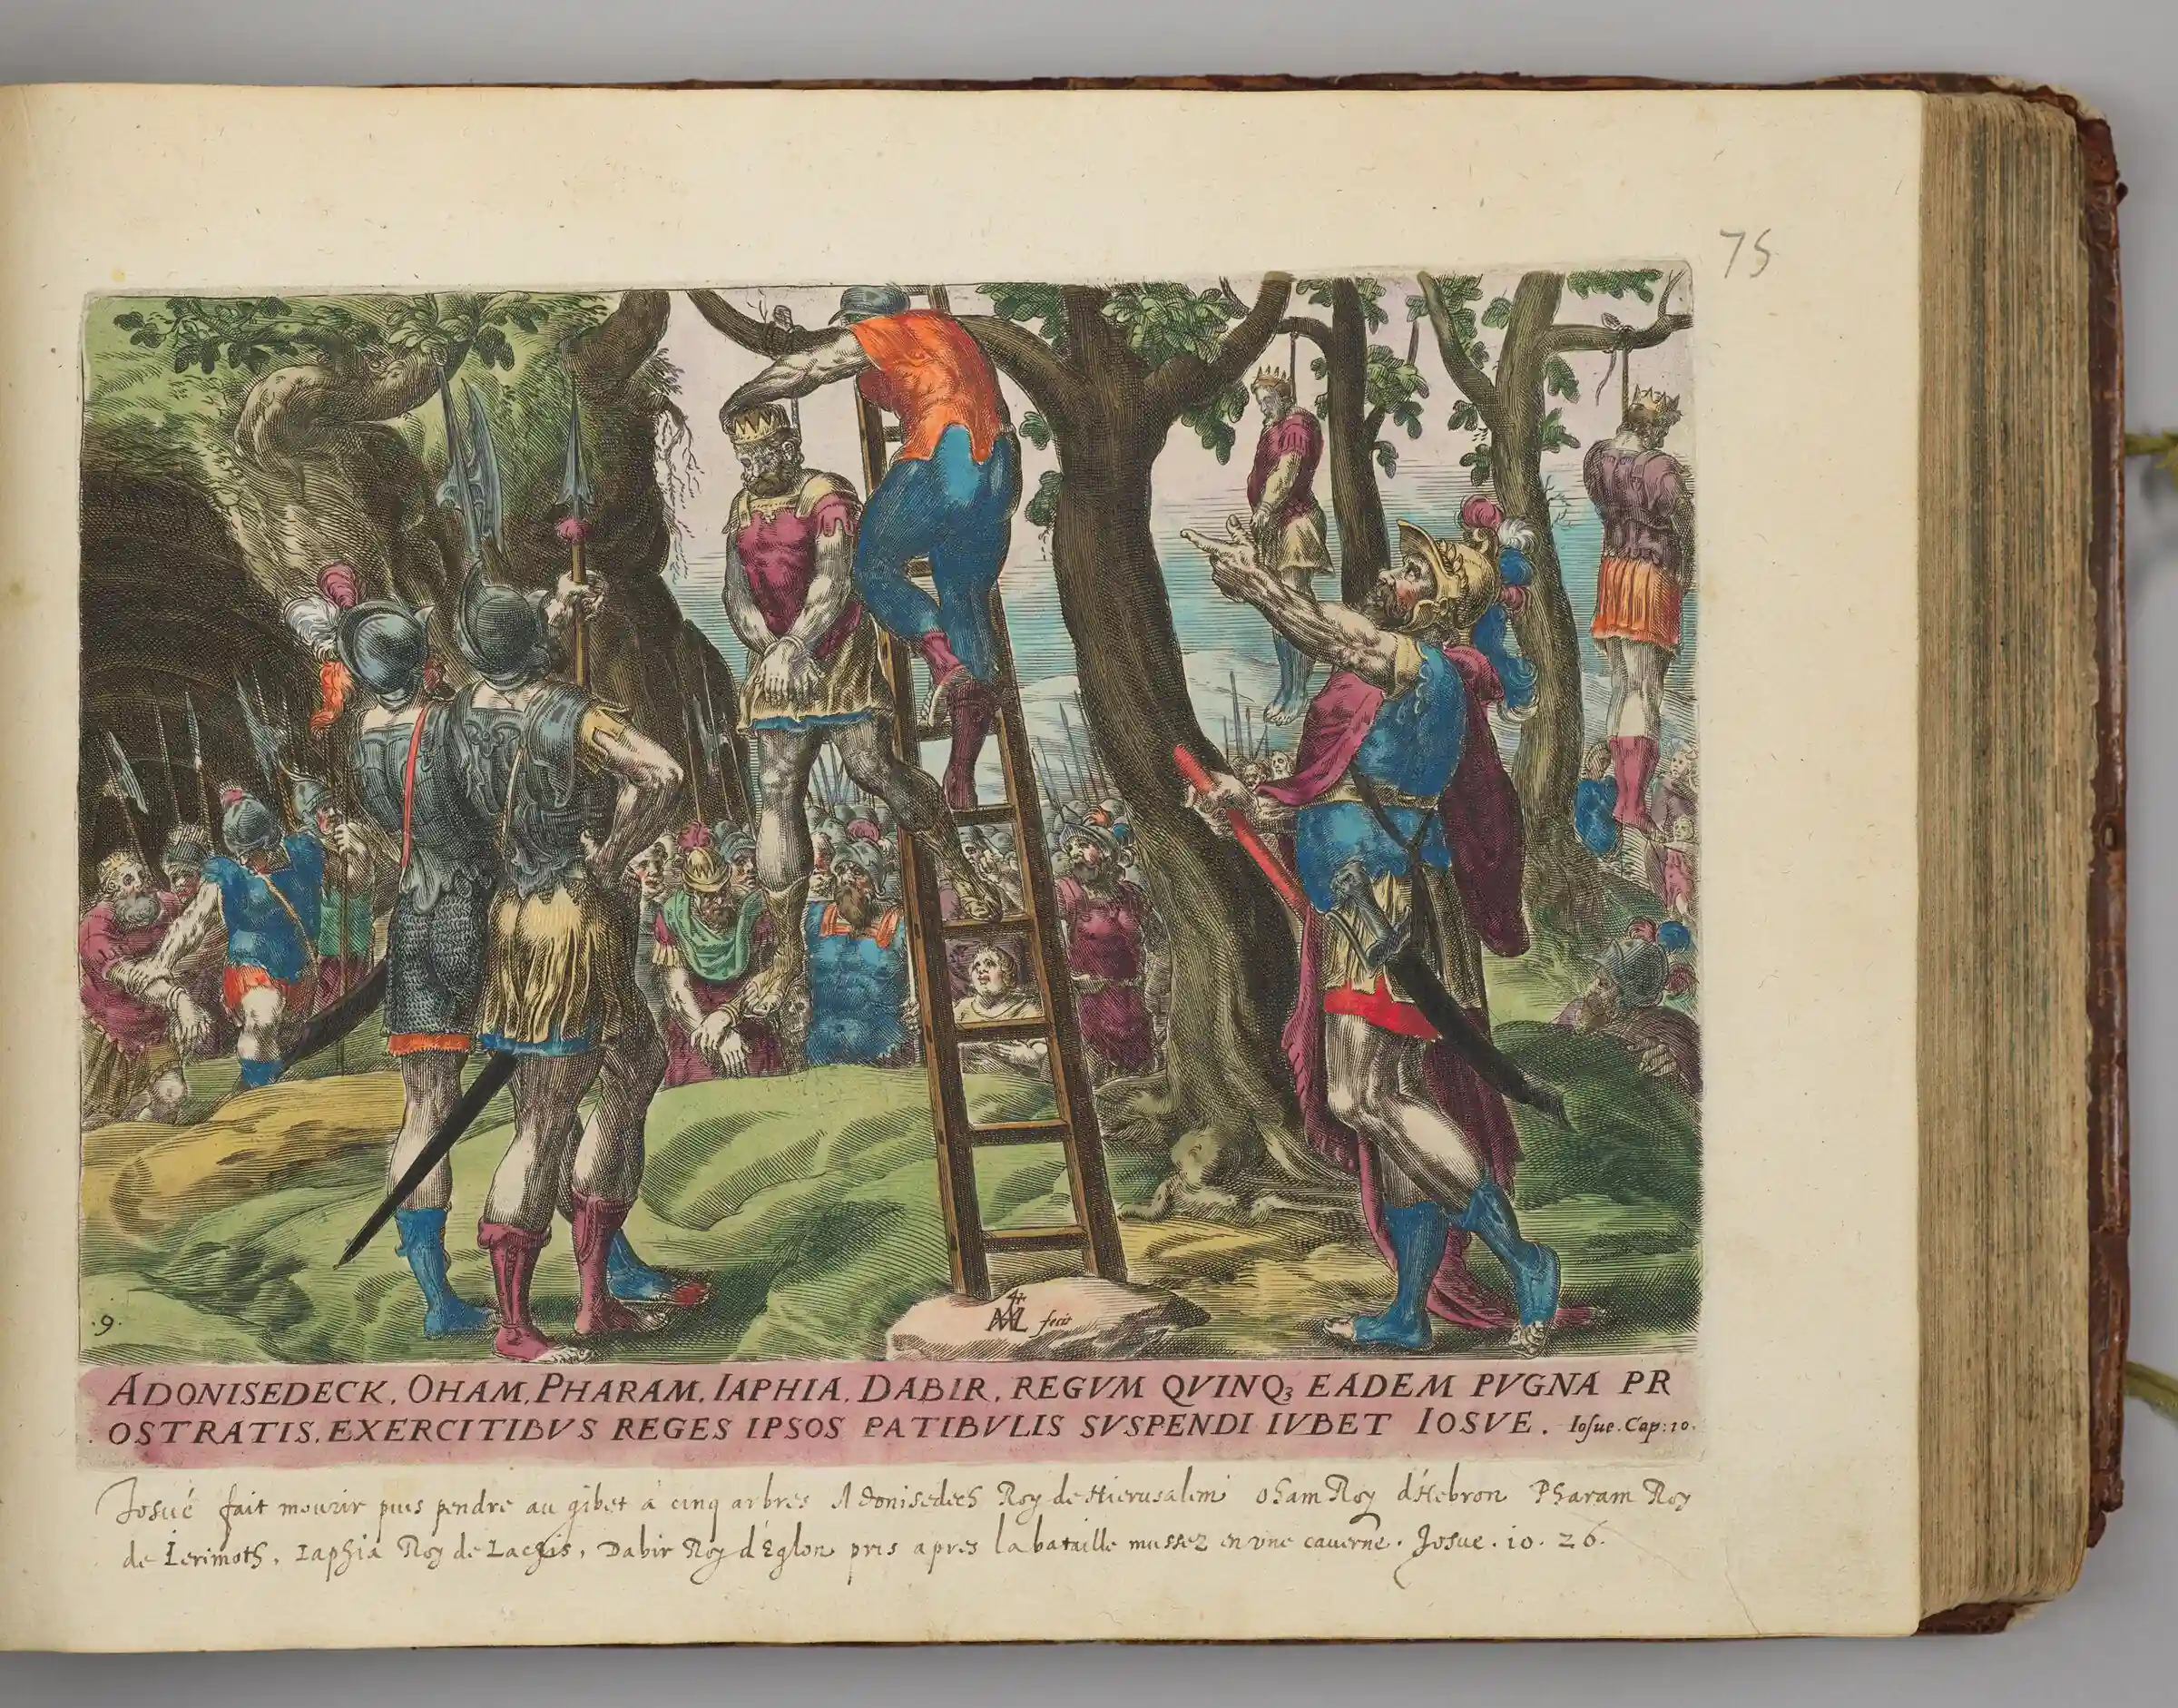 75
.9.
AML fecit
ADONISEDECK. OHAM. PHARAM. IAPHIA. DABIR. REGVM QVINQ3 EADEM PVGNA PR
OSTRATIS. EXERCITIBVS REGES IPSOS PATIBVLIS SVSPENDI IVBET IOSVE. Iosue. Cap: 10.
Josué fait mourir puis pendre au gibet a cinq arbres Adonisedech Roy de Hierusalem Oham Roy d'Hebron Pharam Roy
de Ierimoth, Iaphia Roy de Lachis, Dabir Roy d'Eglon pris apres la bataille mussez en vne cauerne. Josue. 10. 26.